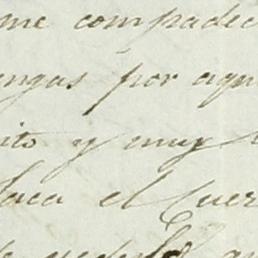 me compadec
engas por aqu
ito y muy
laca el Cuer